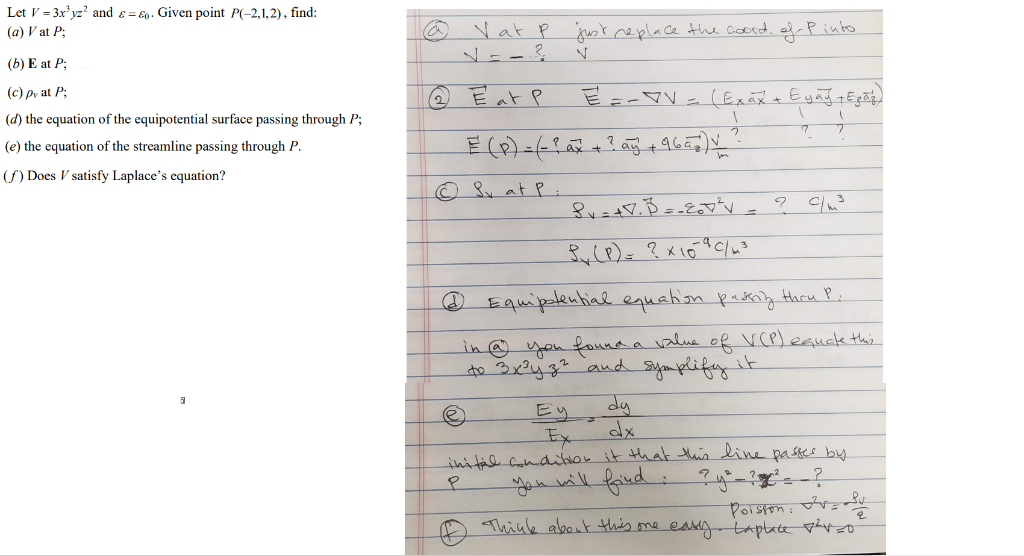 Let V = 3x³yz² and ε = ε₀. Given point P(−2,1,2), find:
(a) V at P;
(b) E at P;
(c) ρᵥ at P;
(d) the equation of the equipotential surface passing through P;
(e) the equation of the streamline passing through P.
(f) Does V satisfy Laplace's equation?
(a) V at P just replace the coord. of P into
V = - ? V
(2) E at P E = -∇V = (Ex ax + Ey ay + Ez az)
? ? ?
E (P) = (- ? ax + ? ay + 96 az) V/m
(c) ρv at P :
ρv = +∇. D = -ε₀∇²V = ? C/m³
ρv (P) = ? x 10⁻⁹ C/m³
(d) Equipotential equation passing thru P:
in (a) you found a value of V(P) equate this
to 3x³yz² and symplify it
(e) Ey/Ex = dy/dx
initial condition it that this line passes by
P you will find : ? y² - ? x² = - ?
Poisson: ∇²V = -ρv/ε
(f) Think about this one easy. Laplace ∇²V=0